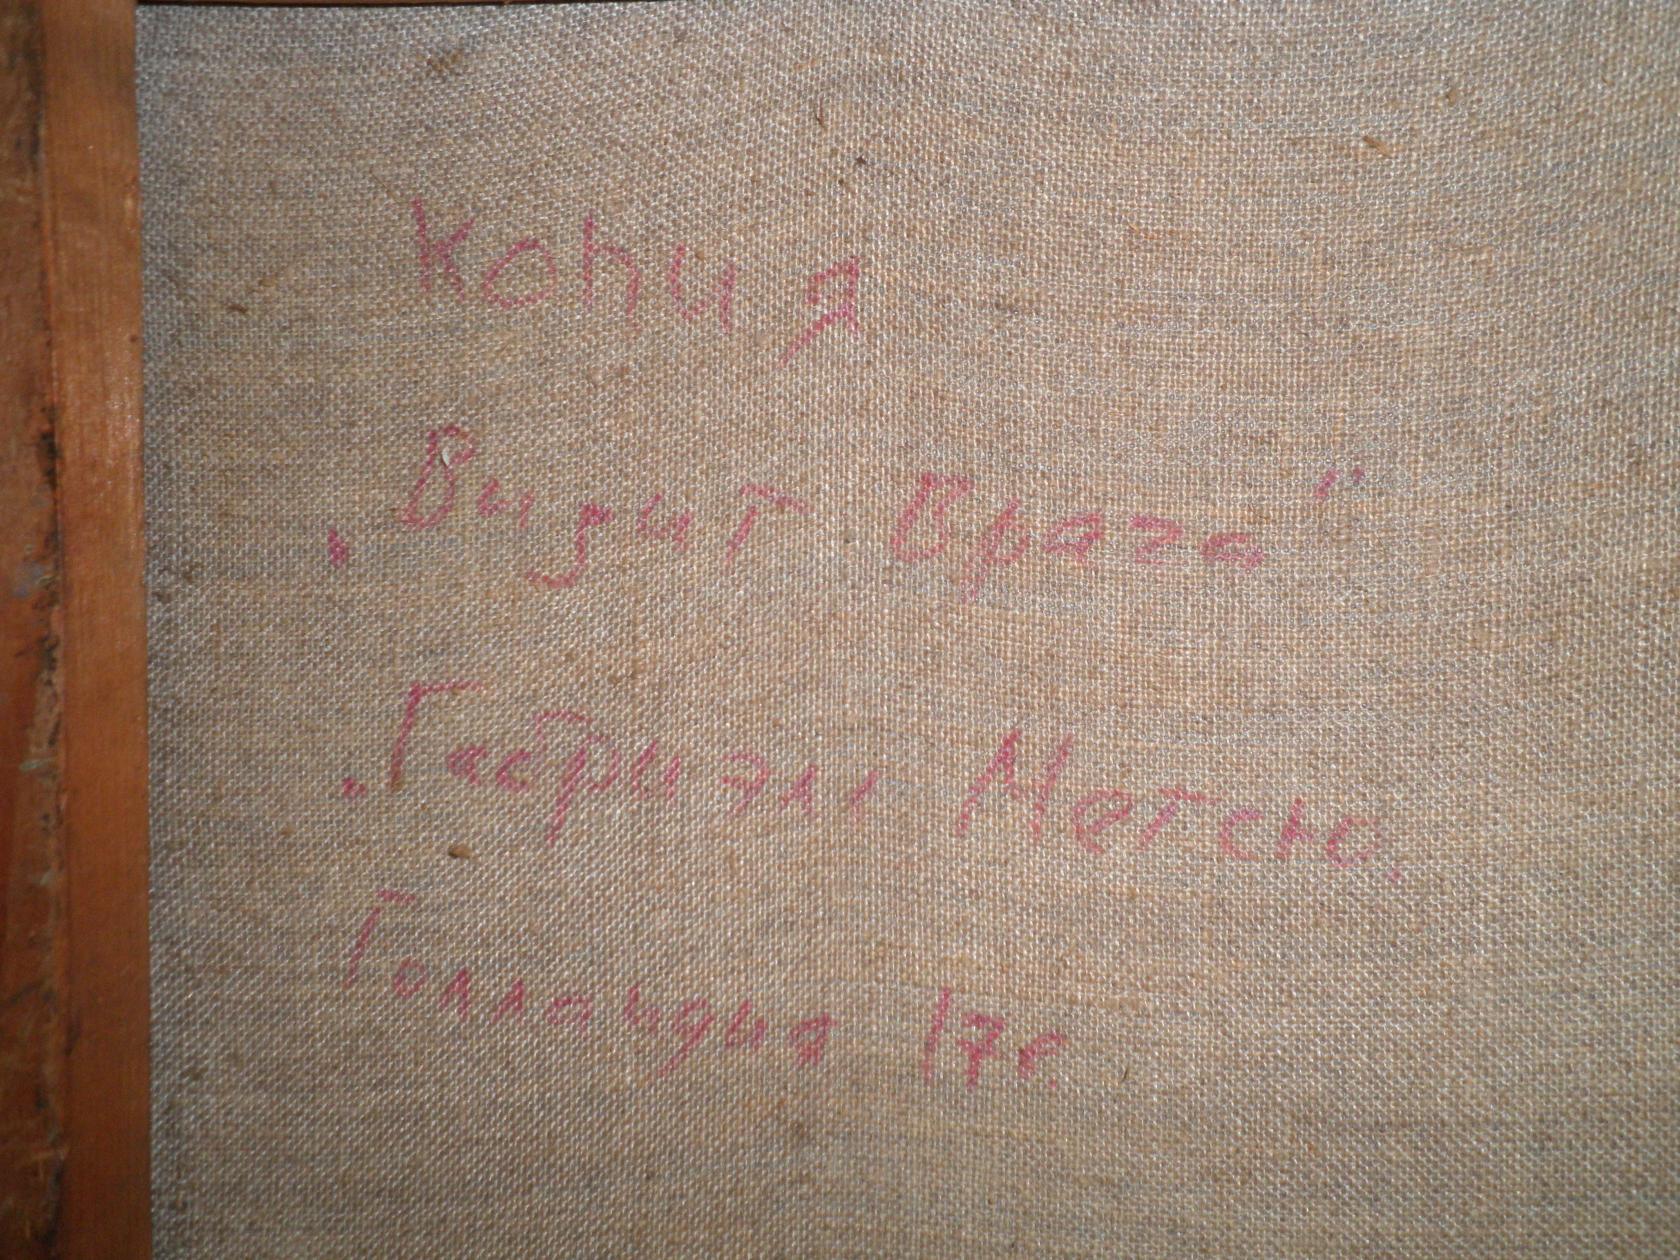 Копия
„Визит Врача"
„Габриэль Метсю.
Голландия 17в.